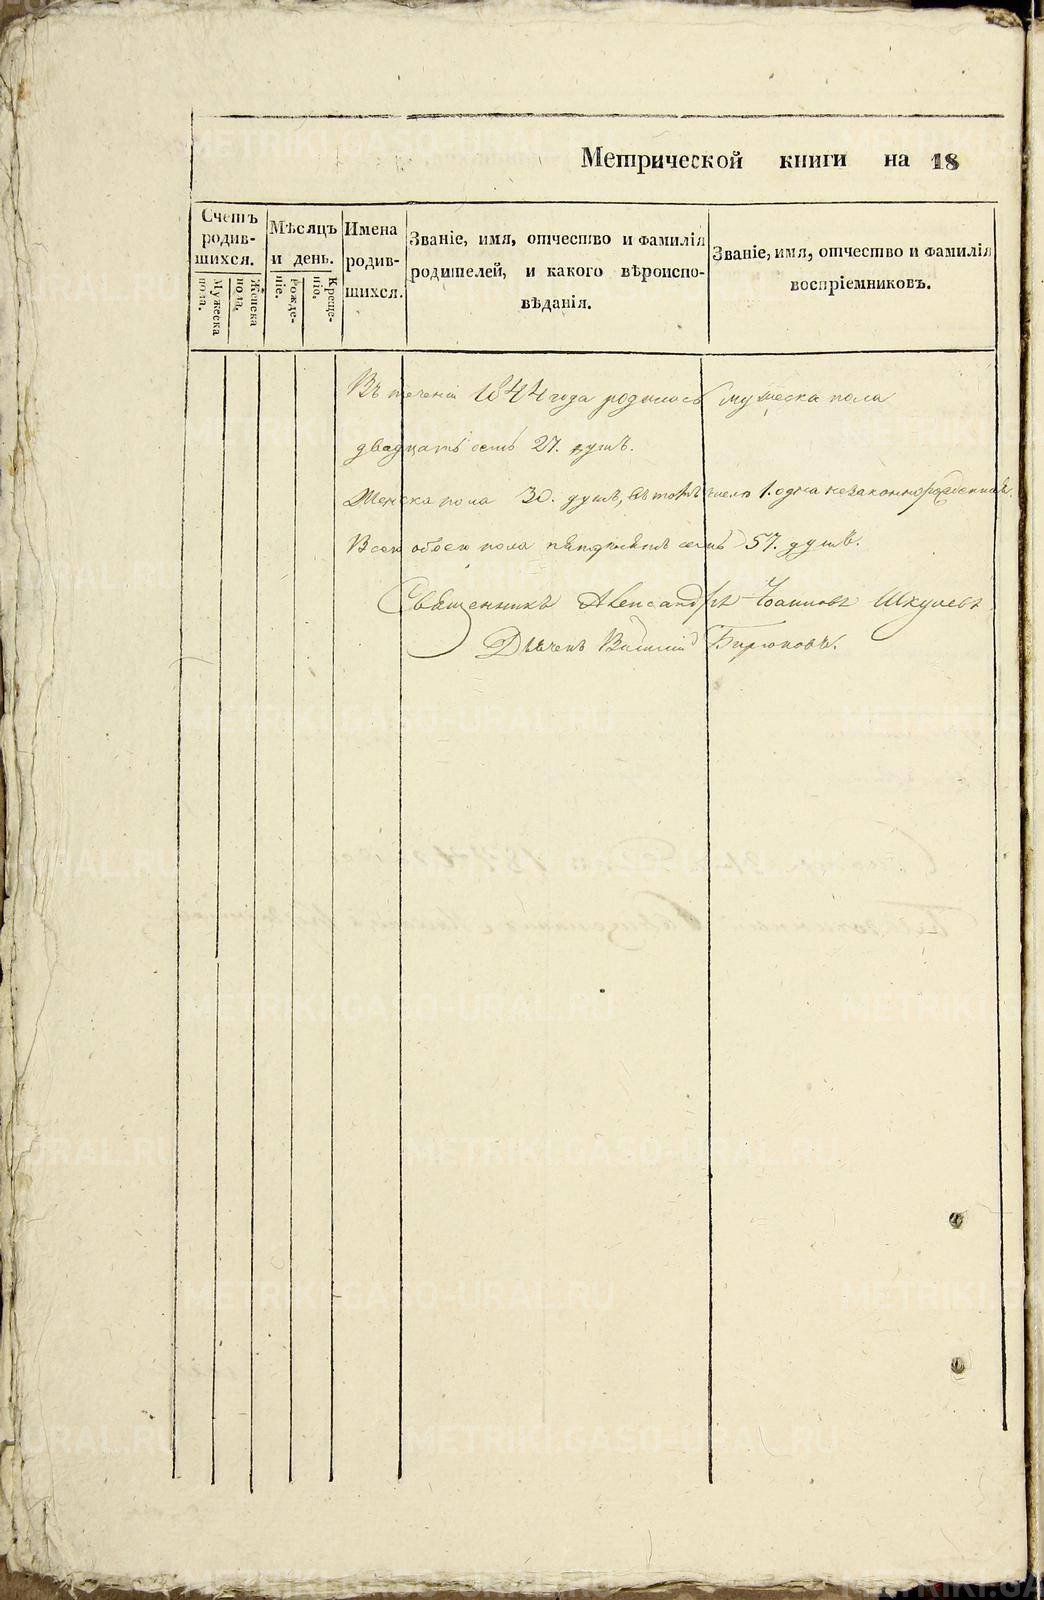 Метрической книги на 18
Счетъ
родив-
шихся.
Мужеска
пола.
Женска
пола.
Мѣсяцъ
и день.
Рожде-
нiе.
Креще-
нiю.
Имена
родив-
шихся.
Званiе, имя, отчество и фамилiя
родителей, и какого вѣроиспо-
вѣданiя.
Званiе, имя, отчество и фамилiя
воспрiемниковъ.
Въ теченiи 1844 года родилось мужеска пола
двадцать семь 27. душъ.
Женска пола 30. душъ, въ томъ числѣ 1. одна незаконнорожденная.
Всего обоего пола пятдесятъ семь 57. душъ.
Священникъ Александръ Iоанновъ
Дьячекъ Василiй Бирюковъ.
METRIKI.GASO-URAL.RU